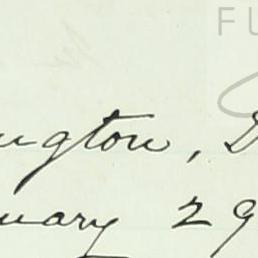 FU
ington, D
uary 29